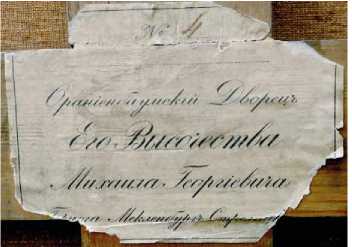 № 4
Ораніенбаумскій Дворецъ
Его Высочества
Михаила Георгіевича
Герцога Мекленбургъ Стрелиц